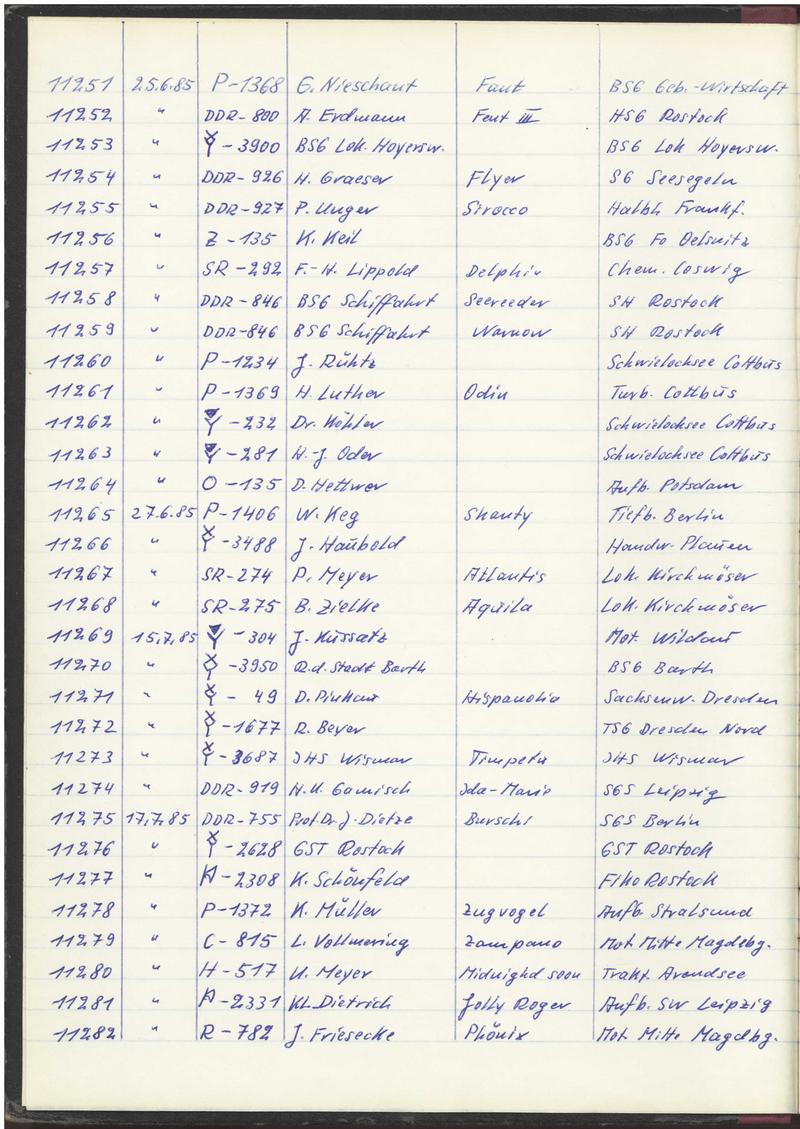 11251 25.6.85 P-1368 G. Nieschaut Faut BSG Geb.-Wirtschaft
11252 " DDR-800 A. Erdmann Faut III HSG Rostock
11253 " -3900 BSG Lok. Hoyersw. BSG Lok Hoyersw.
11254 " DDR-926 H. Graeser Flyer SG Seesegeln
11255 " DDR-927 P. Unger Sirocco Halbl. Frankf.
11256 " Z-135 K. Keil BSG Fo Oelsnitz
11257 " SR-292 F.-H. Lippold Delphin Chem. Coswig
11258 " DDR-846 BSG Schiffahrt Seereeder SH Rostock
11259 " DDR-846 BSG Schiffahrt Warnow SH Rostock
11260 " P-1234 J. Rühtz Schwielochsee Cottbus
11261 " P-1369 H. Luther Odin Turb. Cottbus
11262 " -232 Dr. Köhler Schwielochsee Cottbus
11263 " -281 H.-J. Oder Schwielochsee Cottbus
11264 " O-135 D. Hettwer Aufb. Potsdam
11265 27.6.85 P-1406 W. Keg Shanty Tiefb. Berlin
11266 " -3488 J. Haubold Handw. Plauen
11267 " SR-274 P. Meyer Atlantis Lok. Kirchmöser
11268 " SR-275 B. Zielke Aquila Lok. Kirchmöser
11269 15.7.85 -304 J. Kussatz Mot. Wildau
11270 " -3950 R.d. Stadt Barth BSG Barth
11271 " - 49 D. Pinkau Hispanolia Sachsenw. Dresden
11272 " -1677 R. Beyer TSG Dresden Nord
11273 " -3687 JHS Wismar Timpetu JHS Wismar
11274 " DDR-919 H.U. Gamisch Ida-Marie SGS Leipzig
11275 17.7.85 DDR-755 Prof. Dr. J. Dietze Burschi SGS Berlin
11276 " -2628 GST Rostock GST Rostock
11277 " A-2308 K. Schönfeld FIKO Rostock
11278 " P-1372 K. Müller Zugvogel Aufb. Stralsund
11279 " C-815 L. Vollmering Zampano Mot Mitte Magdebg.
11280 " H-517 U. Meyer Midnighd soon Trakt. Arendsee
11281 " A-2331 Kl. Dietrich Jolly Roger Aufb. SW Leipzig
11282 " R-782 J. Friesecke Phönix Mot. Mitte Magdbg.